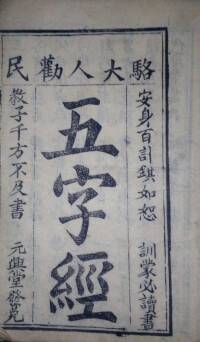 駱大人勸民
安身百計鎮如恕 訓蒙必讀書
五字經
教子千方不及書 元興堂發兌